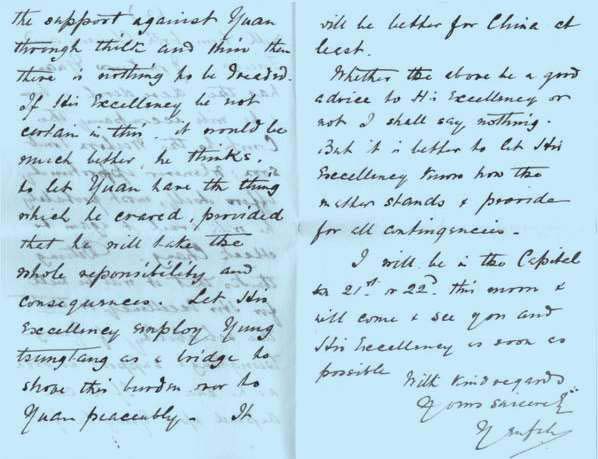 the support against Yuan
through thick and thin then
there is nothing to be dreaded.
If His Excellency be not
certain in this, it would be
much better, he thinks,
to let Yuan have the thing
which he craved, provided
that he will take the
whole reponsibility and
consequences. Let His
Excellency employ Yung
tsungtang as a bridge to
shove this burden over to
Yuan peaceably. It
will be better for China at
least.
Whether the above be a good
advice to His Excellency or
not I shall say nothing.
But it is better to let His
Excellency know how the
matter stands & provide
for all contingencies.
I will be in the Capital
on 21st or 22d this moon &
will come & see you and
His Excellency as soon as
possible
With kind regards
Yours sincerely